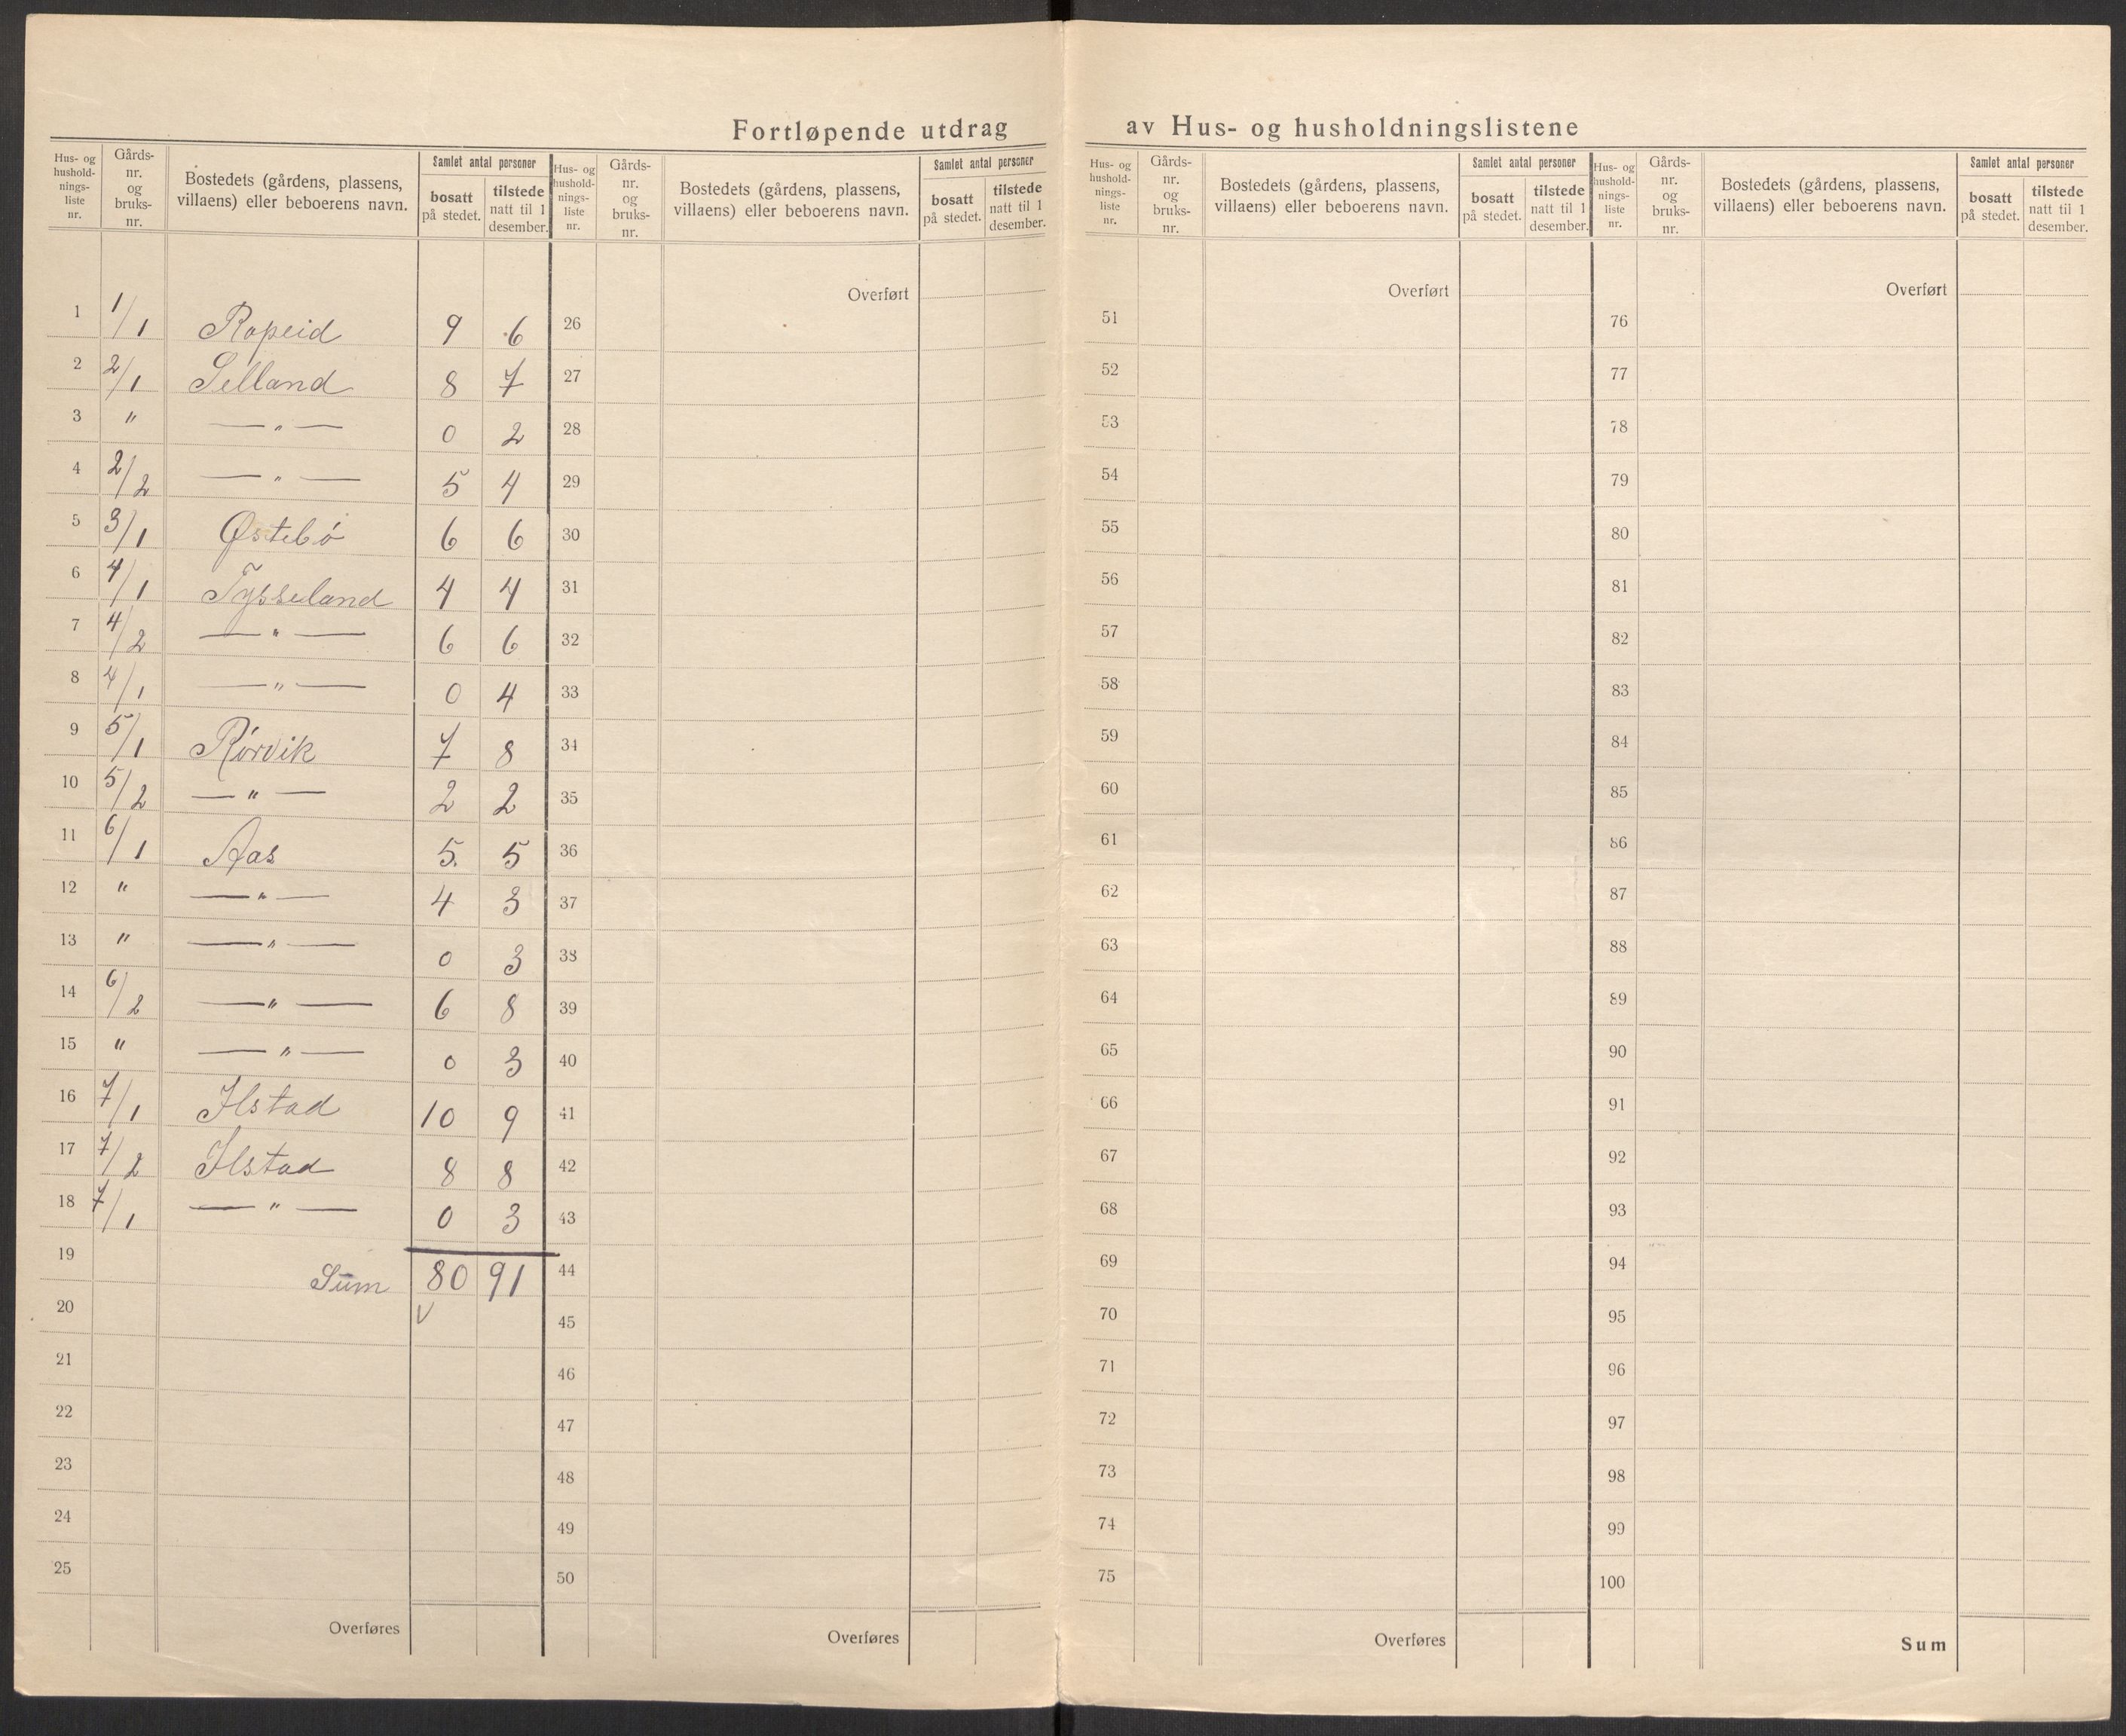 Fortløpende utdrag av Hus- og husholdningslistene
Hus- og husholdningsliste nr. Gårds-nr. og bruks-nr. Bostedets (gårdens, plassens, villaens) eller beboerens navn. Samlet antal personer bosatt på stedet. tilstede natt til 1 desember.
1 1/1 Ropeid 9 6
2 2/1 Selland 8 7
3 " — " — 0 2
4 2/2 — " — 5 4
5 3/1 Østebö 6 6
6 4/1 Tysseland 4 4
7 4/2 — " — 6 6
8 4/1 — " — 0 4
9 5/1 Rörvik 7 8
10 5/2 — " — 2 2
11 6/1 Aas 5. 5
12 " — " — 4 3
13 " — " — 0 3
14 6/2 — " — 6 8
15 " — " — 0 3
16 7/1 Ilstad 10 9
17 7/2 Ilstad 8 8
18 7/1 — " — 0 3
19 Sum 80 91
20 V
21
22
23
24
25
Overføres
Hus- og husholdningsliste nr. Gårds-nr. og bruks-nr. Bostedets (gårdens, plassens, villaens) eller beboerens navn. Samlet antal personer bosatt på stedet. tilstede natt til 1 desember.
Overført
26
27
28
29
30
31
32
33
34
35
36
37
38
39
40
41
42
43
44
45
46
47
48
49
50
Overføres
Hus- og husholdningsliste nr. Gårds-nr. og bruks-nr. Bostedets (gårdens, plassens, villaens) eller beboerens navn. Samlet antal personer bosatt på stedet. tilstede natt til 1 desember.
Overført
51
52
53
54
55
56
57
58
59
60
61
62
63
64
65
66
67
68
69
70
71
72
73
74
75
Overføres
Hus- og husholdningsliste nr. Gårds-nr. og bruks-nr. Bostedets (gårdens, plassens, villaens) eller beboerens navn. Samlet antal personer bosatt på stedet. tilstede natt til 1 desember.
Overført
76
77
78
79
80
81
82
83
84
85
86
87
88
89
90
91
92
93
94
95
96
97
98
99
100
Sum